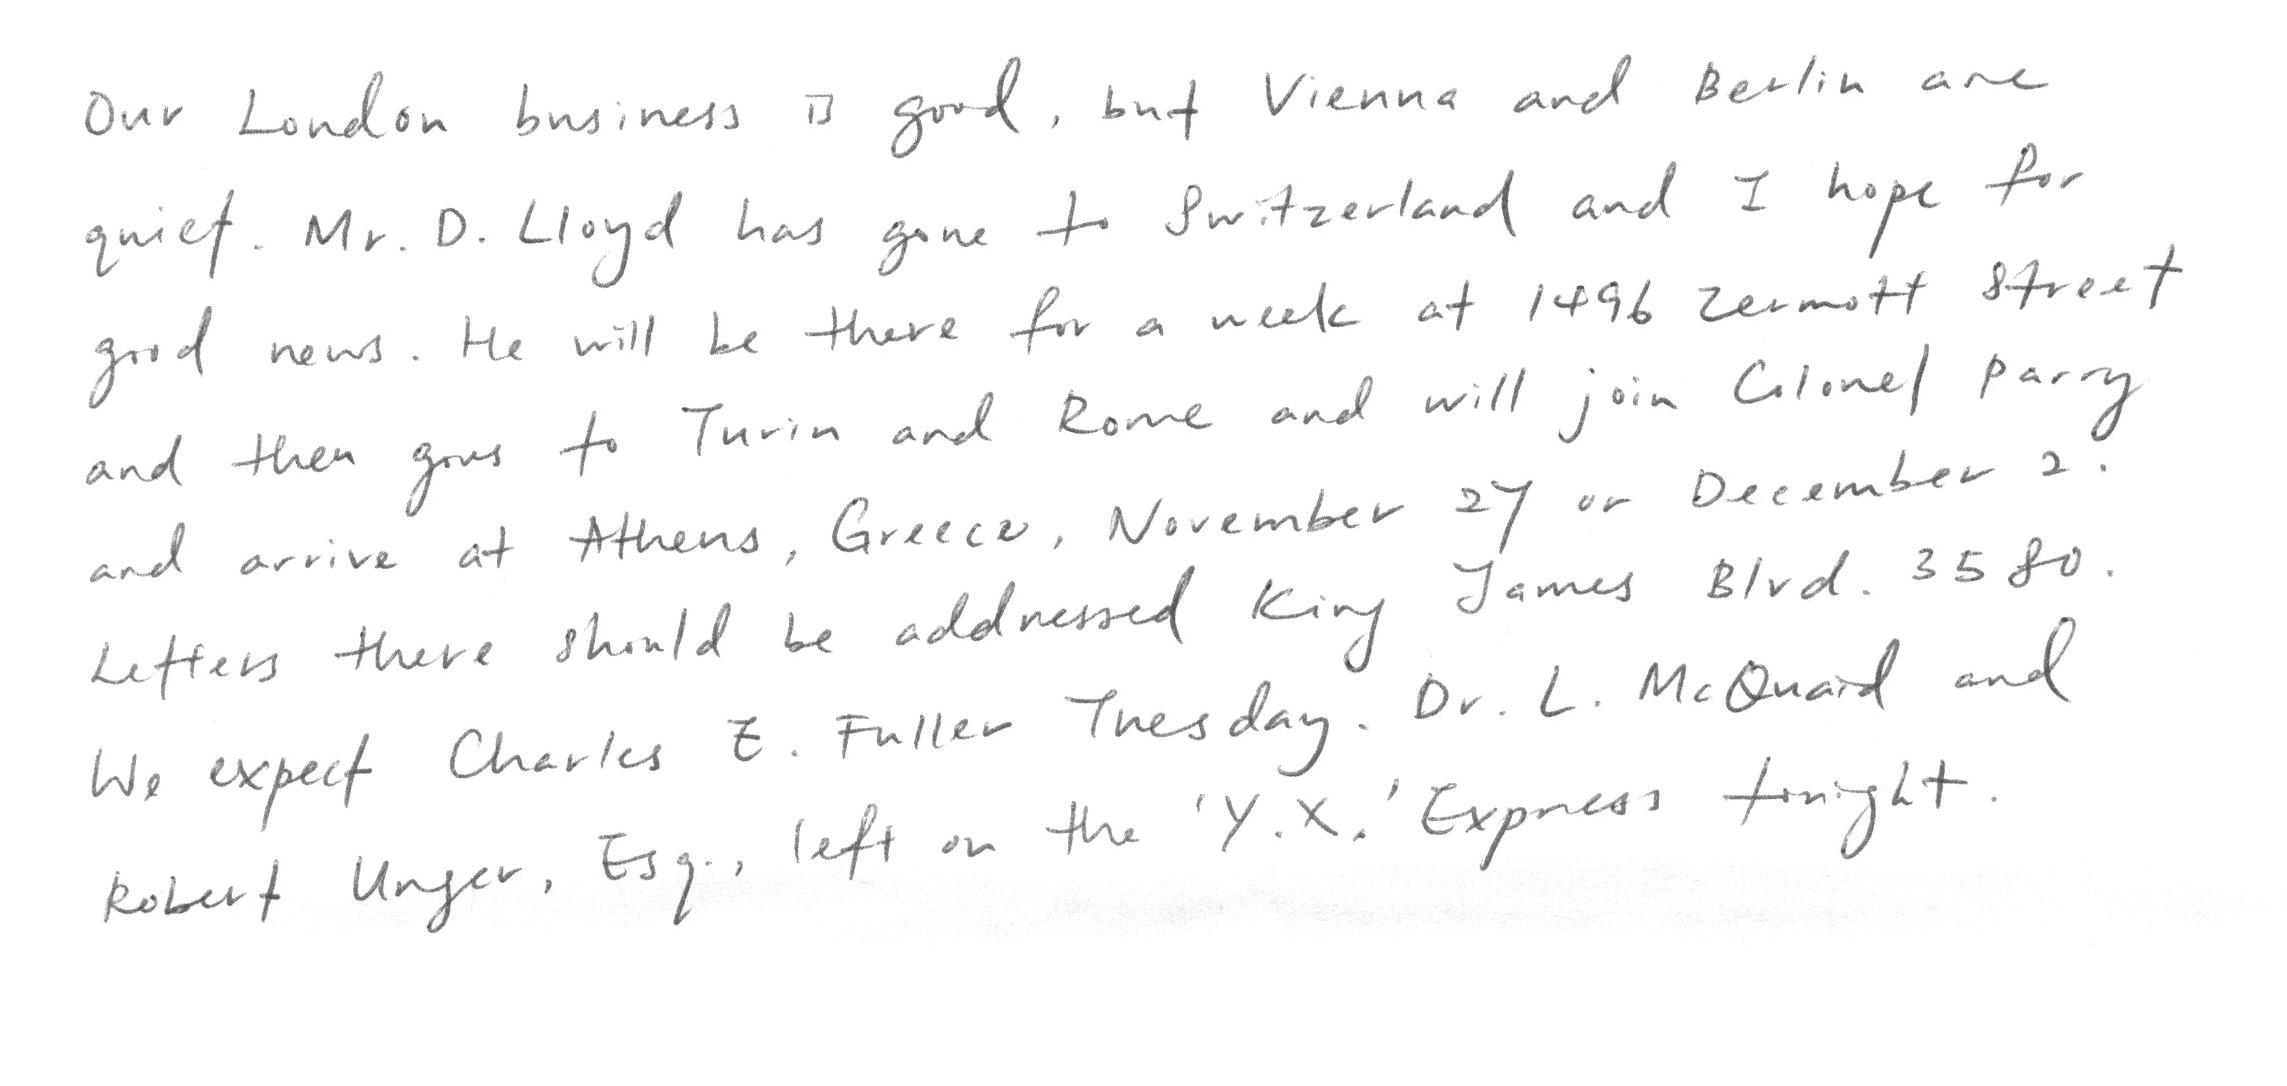 Our London business is good, but Vienna and Berlin are
quiet. Mr. D. Lloyd has gone to Switzerland and I hope for
good news. He will be there for a week at 1496 Zermott Street
and then goes to Turin and Rome and will join Colonel Parry
and arrive at Athens, Greece, November 27 or December 2.
Letters there should be addressed King James Blvd. 3580.
We expect Charles E. Fuller Tuesday. Dr. L. McQuaid and
Robert Unger, Esq., left on the 'Y.X.' Express tonight.